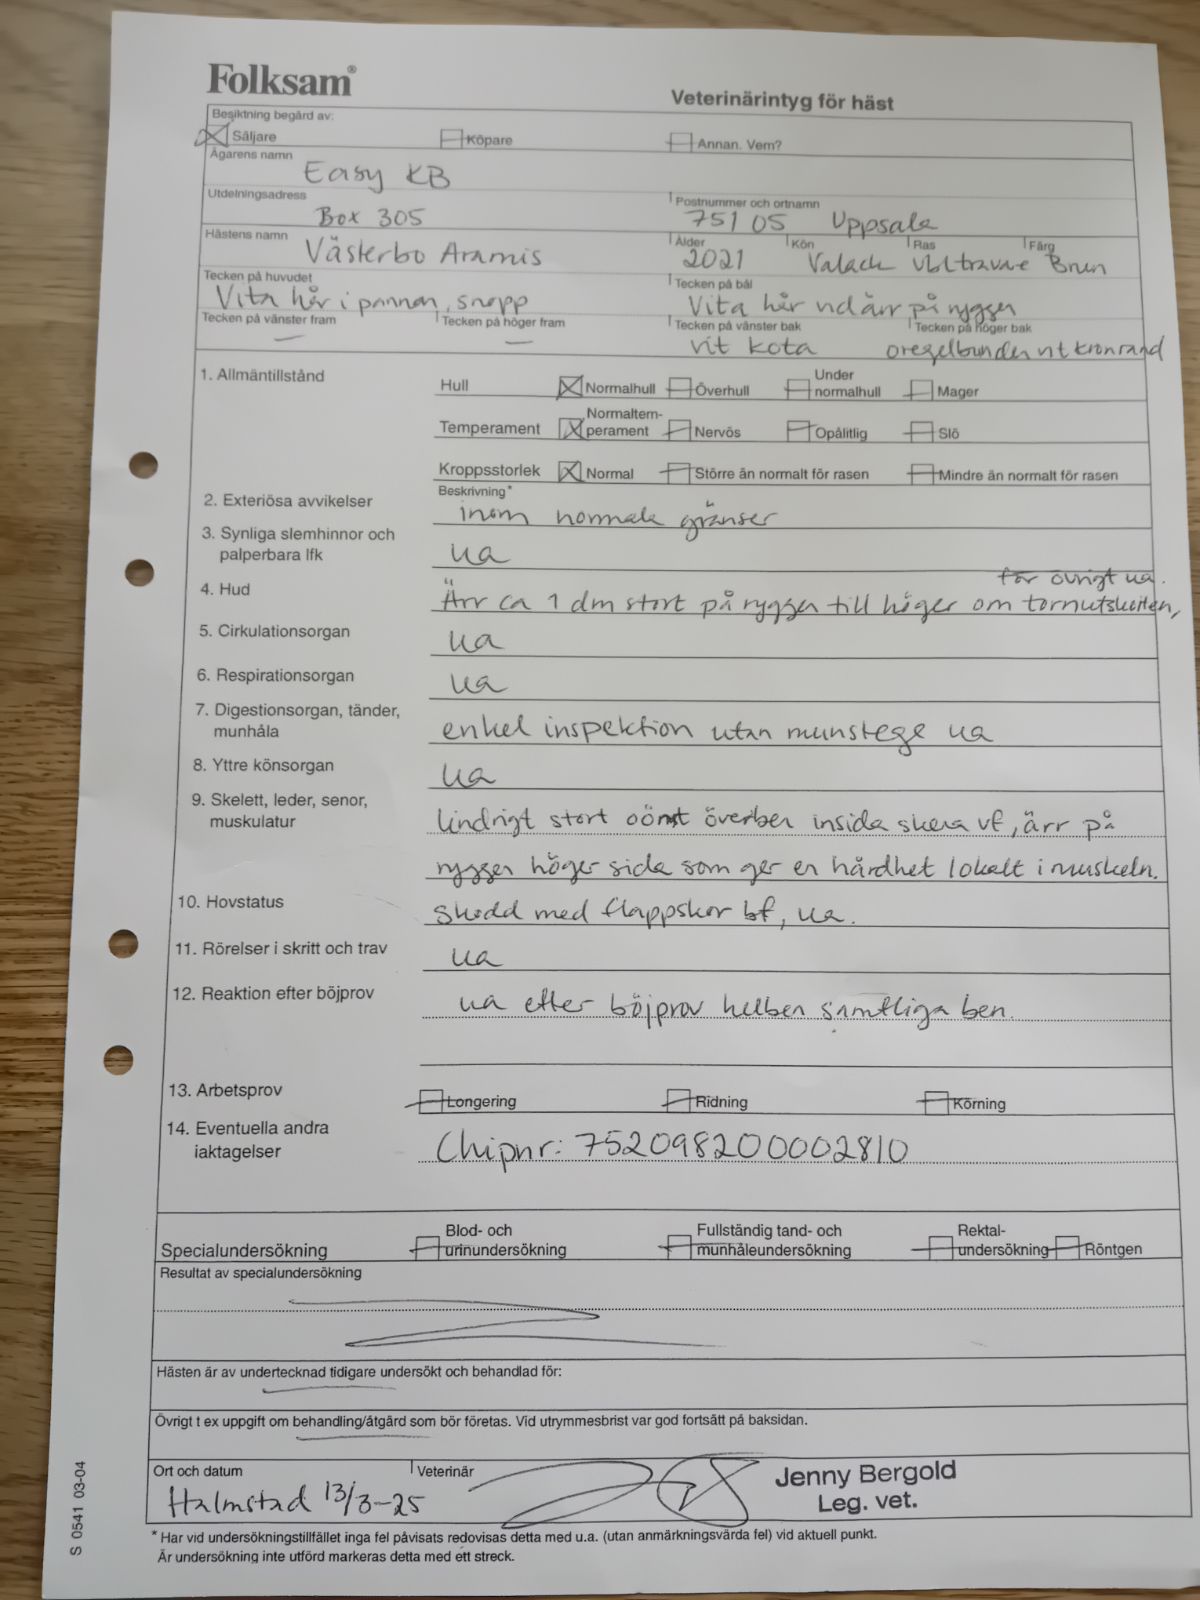 Folksam®
Veterinärintyg för häst
Besiktning begärd av:
Säljare Köpare Annan. Vem?
Ägarens namn
Easy KB
Utdelningsadress Postnummer och ortnamn
Box 305 751 05 Uppsala
Hästens namn Ålder Kön Ras Färg
Västerbo Aramis 2021 Valack vbltravare Brun
Tecken på huvudet Tecken på bål
Vita hår i pannan, snopp Vita hår vid ärr på ryggen
Tecken på vänster fram Tecken på höger fram Tecken på vänster bak Tecken på höger bak
— — vit kota oregelbunden vit kronrand
1. Allmäntillstånd
Hull Normalhull Överhull Under normalhull Mager
Temperament Normaltem-perament Nervös Opålitlig Slö
Kroppsstorlek Normal Större än normalt för rasen Mindre än normalt för rasen
Beskrivning*
2. Exteriösa avvikelser inom normala gränser
3. Synliga slemhinnor och
palperbara lfk ua
för övrigt ua.
4. Hud Ärr ca 1 dm stort på ryggen till höger om tornutskotten,
5. Cirkulationsorgan ua
6. Respirationsorgan ua
7. Digestionsorgan, tänder,
munhåla enkel inspektion utan munstege ua
8. Yttre könsorgan ua
9. Skelett, leder, senor,
muskulatur lindrigt stort oömt överben insida skena vf, ärr på
ryggen höger sida som ger en hårdhet lokalt i muskeln.
10. Hovstatus skodd med flappskor bf, ua.
11. Rörelser i skritt och trav ua
12. Reaktion efter böjprov ua efter böjprov helben samtliga ben.
13. Arbetsprov Longering Ridning Körning
14. Eventuella andra
iaktagelser Chipnr: 752098200002810
Specialundersökning Blod- och urinundersökning Fullständig tand- och munhåleundersökning Rektal-undersökning Röntgen
Resultat av specialundersökning
Hästen är av undertecknad tidigare undersökt och behandlad för:
Övrigt t ex uppgift om behandling/åtgärd som bör företas. Vid utrymmesbrist var god fortsätt på baksidan.
Ort och datum Veterinär
Halmstad 13/3-25 Jenny Bergold
Leg. vet.
* Har vid undersökningstillfället inga fel påvisats redovisas detta med u.a. (utan anmärkningsvärda fel) vid aktuell punkt.
Är undersökning inte utförd markeras detta med ett streck.
S 0541 03-04